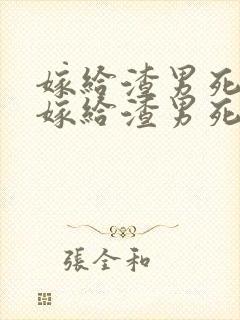 嫁给渣男死
嫁给渣男死
張全和